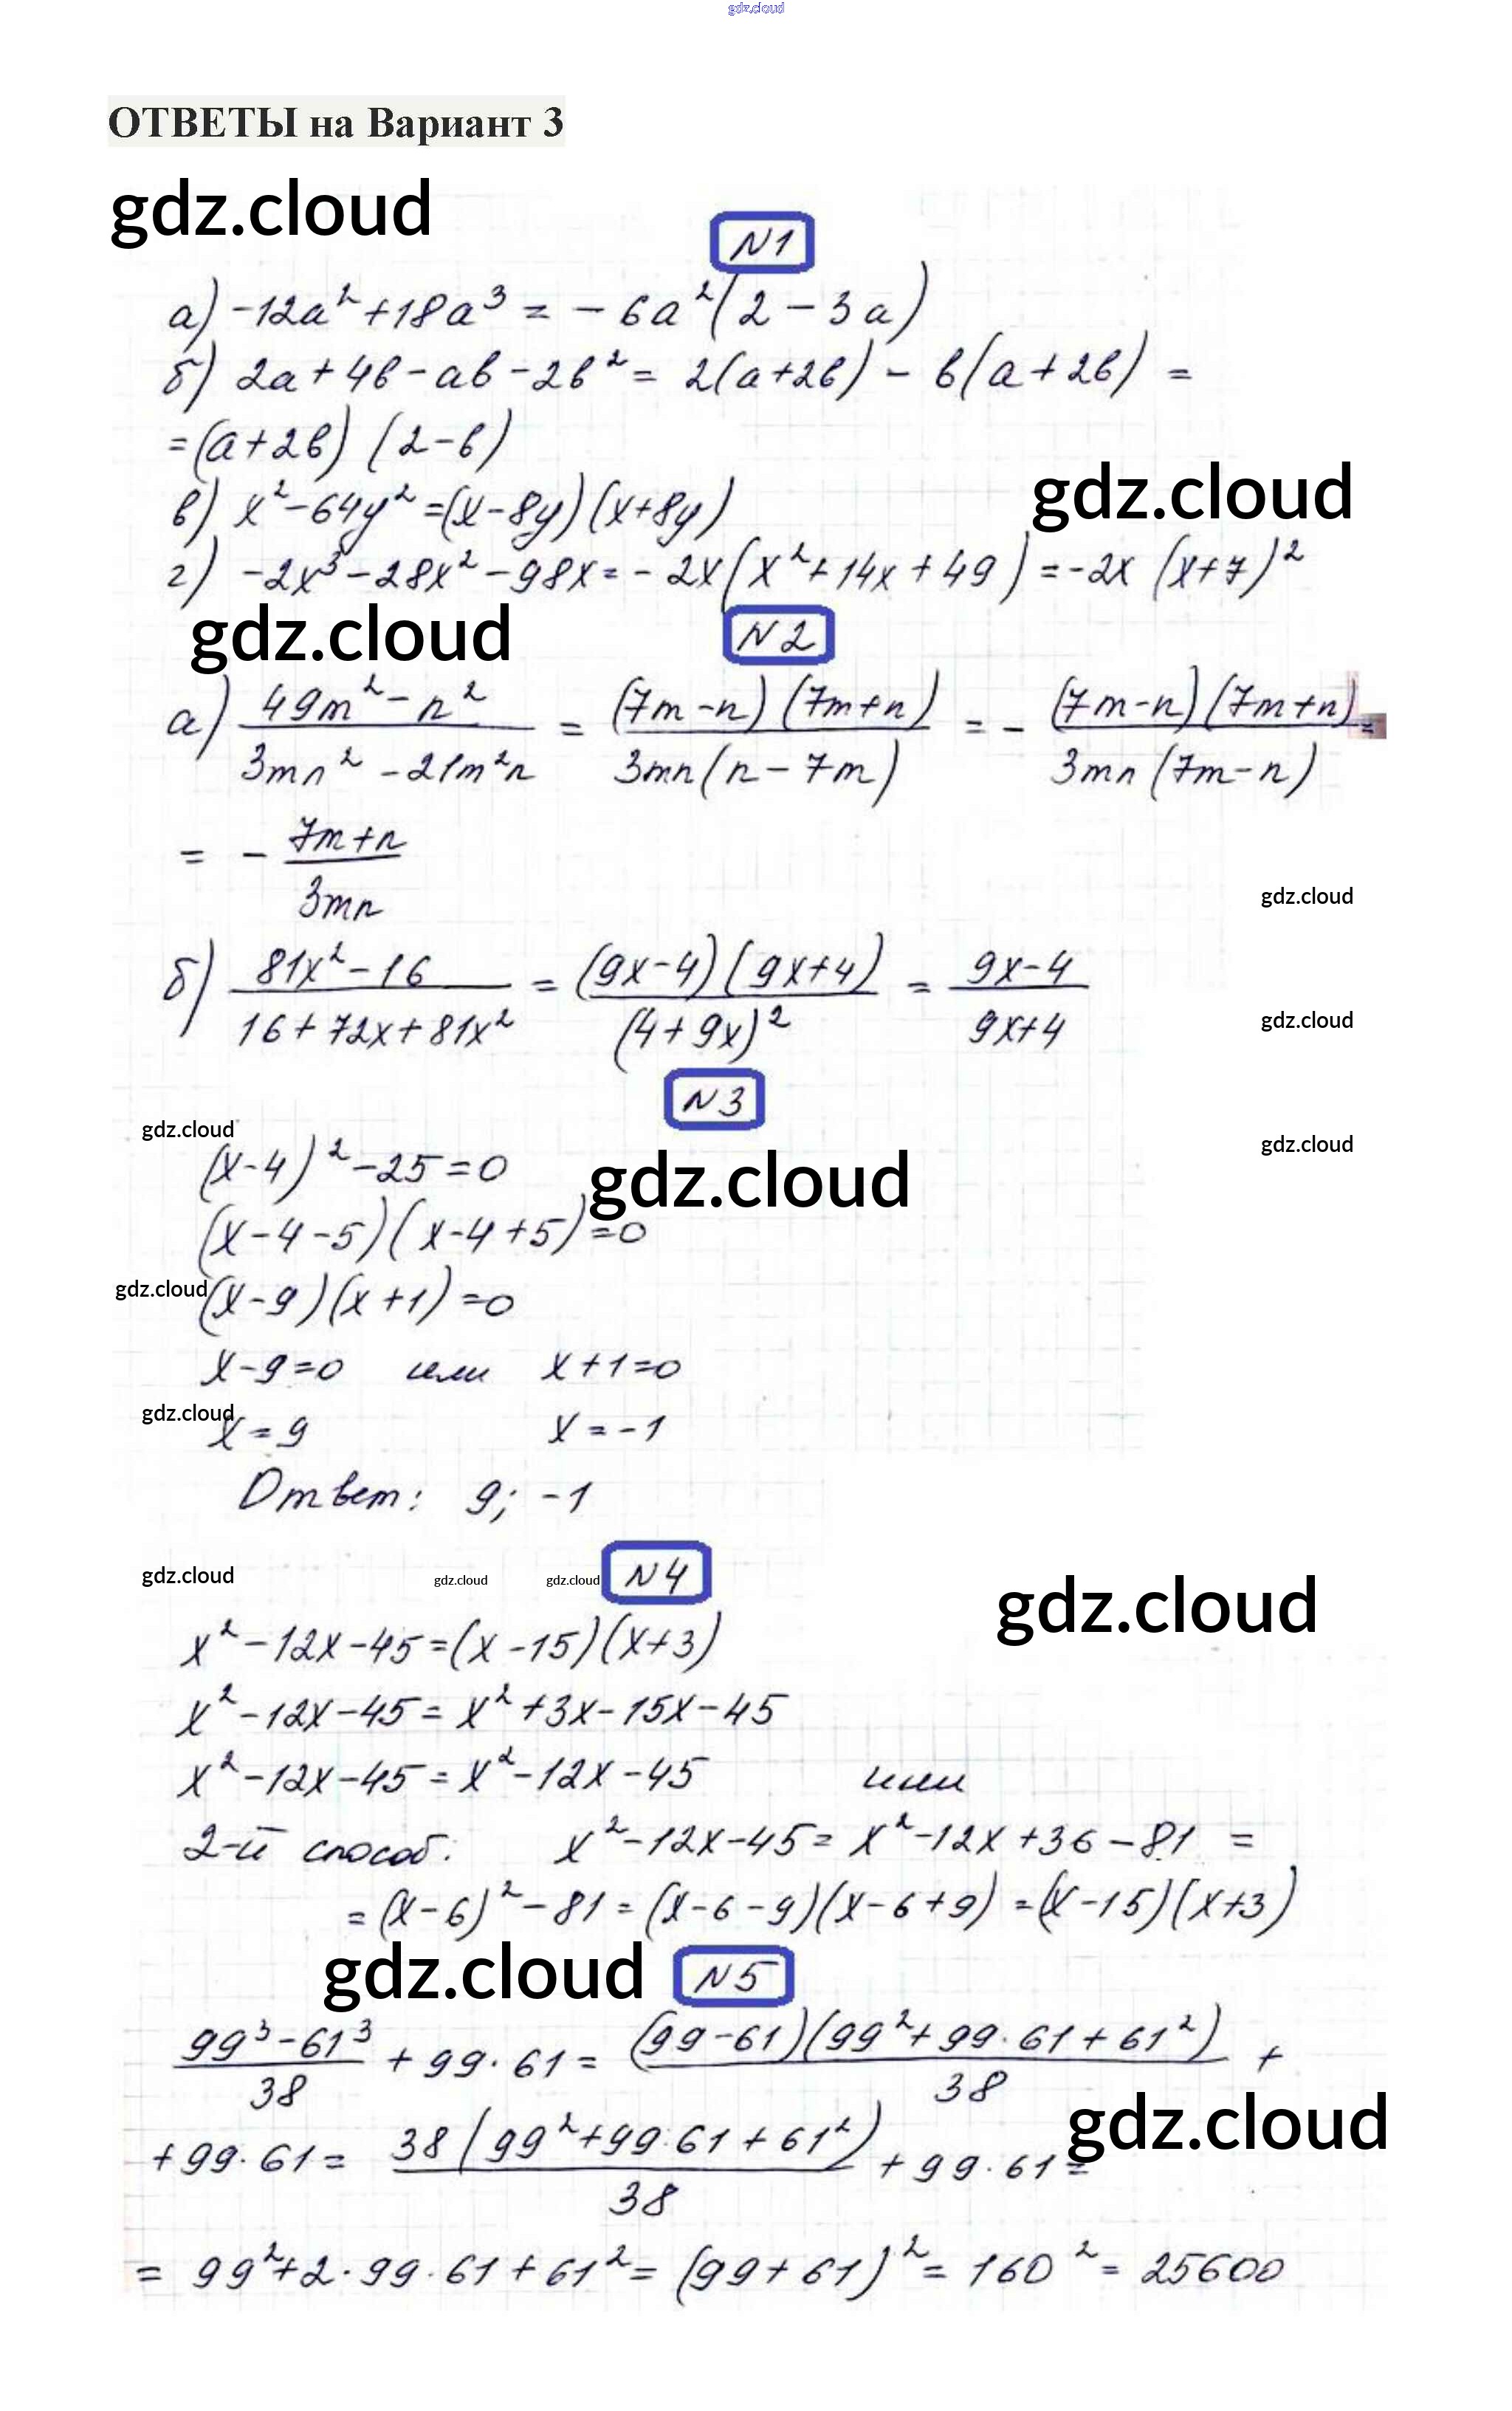 gdz.cloud
ОТВЕТЫ на Вариант 3
gdz.cloud
N1
а) -12a² + 18a³ = - 6a²(2 - 3a)
б) 2a + 4b - ab - 2b² = 2(a+2b) - b(a+2b) =
= (a+2b) (2-b)
в) x² - 64y² = (x-8y)(x+8y)
gdz.cloud
г) -2x³ - 28x² - 98x = - 2x(x² + 14x + 49) = -2x (x+7)²
gdz.cloud
N2
а) (49m² - n²)/(3mn² - 21m²n) = ((7m-n)(7m+n))/(3mn(n-7m)) = - ((7m-n)(7m+n))/(3mn(7m-n)) =
= - (7m+n)/(3mn)
gdz.cloud
б) (81x² - 16)/(16 + 72x + 81x²) = ((9x-4)(9x+4))/((4+9x)²) = (9x-4)/(9x+4)
gdz.cloud
N3
gdz.cloud
gdz.cloud
(x-4)² - 25 = 0
gdz.cloud
(x-4-5)(x-4+5) = 0
gdz.cloud
(x-9)(x+1) = 0
x-9=0 или x+1=0
gdz.cloud
x = 9 x = -1
Ответ: 9; -1
gdz.cloud
gdz.cloud
gdz.cloud
N4
gdz.cloud
x² - 12x - 45 = (x-15)(x+3)
x² - 12x - 45 = x² + 3x - 15x - 45
x² - 12x - 45 = x² - 12x - 45 или
2-й способ: x² - 12x - 45 = x² - 12x + 36 - 81 =
= (x-6)² - 81 = (x-6-9)(x-6+9) = (x-15)(x+3)
gdz.cloud
N5
(99³ - 61³)/38 + 99·61 = ((99-61)(99² + 99·61 + 61²))/38 +
gdz.cloud
+ 99·61 = (38(99² + 99·61 + 61²))/38 + 99·61 =
= 99² + 2·99·61 + 61² = (99+61)² = 160² = 25600